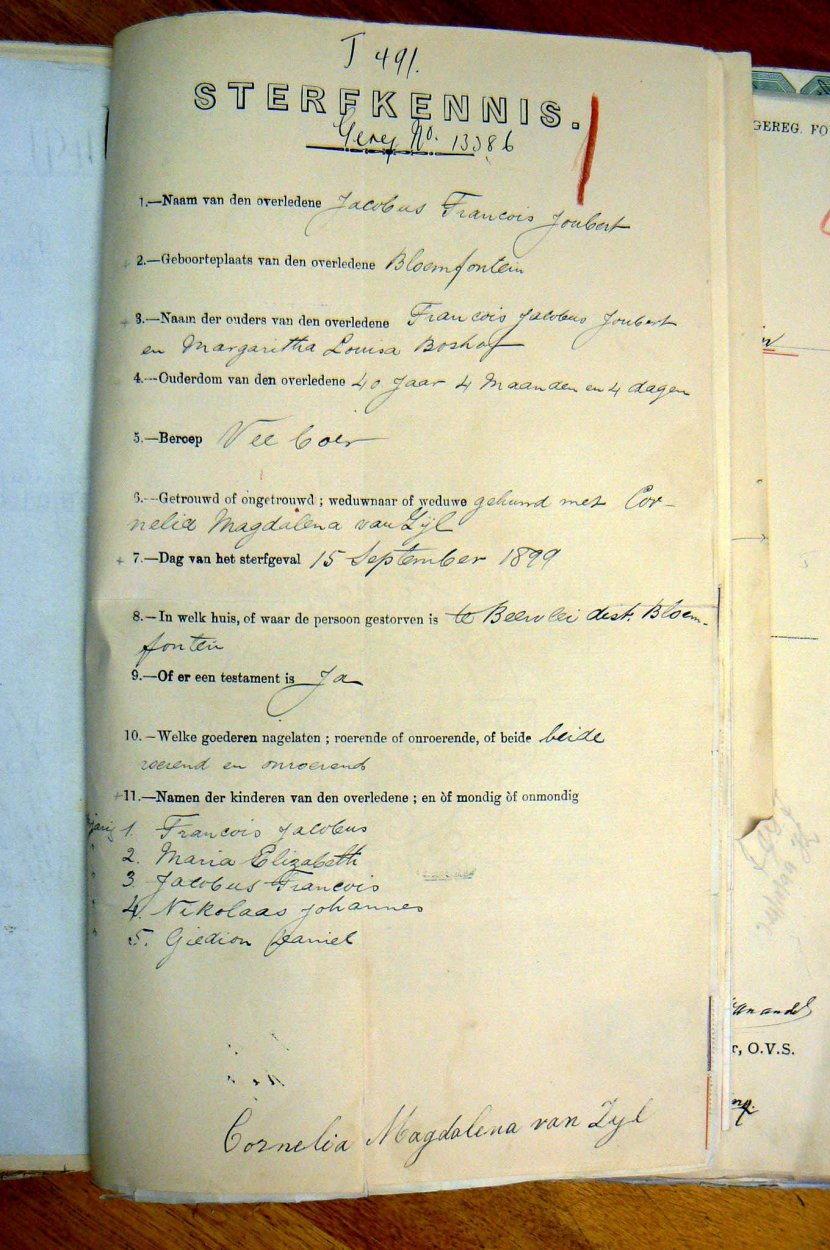 J 491.
STERFKENNIS.
Gereg No. 13386
1.—Naam van den overledene Jacobus Francois Joubert
2.—Geboorteplaats van den overledene Bloemfontein
3.—Naam der ouders van den overledene Francois Jacobus Joubert
en Margaritha Louisa Boshof
4.—Ouderdom van den overledene 40 Jaar 4 Maanden en 4 dagen
5.—Beroep Vee boer
6.—Getrouwd of ongetrouwd; weduwnaar of weduwe gehuwd met Cor-
nelia Magdalena van Zijl
7.—Dag van het sterfgeval 15 September 1899
8.—In welk huis, of waar de persoon gestorven is te Beervlei dist. Bloem-
fontein
9.—Of er een testament is Ja
10.—Welke goederen nagelaten; roerende of onroerende, of beide beide
roerend en onroerend
11.—Namen der kinderen van den overledene; en òf mondig òf onmondig
1. Francois Jacobus
2. Maria Elizabeth
3 Jacobus Francois
4. Nikolaas Johannes
5. Giedion Daniel
Cornelia Magdalena van Zyl
GEREG. FO
r, O.V.S.